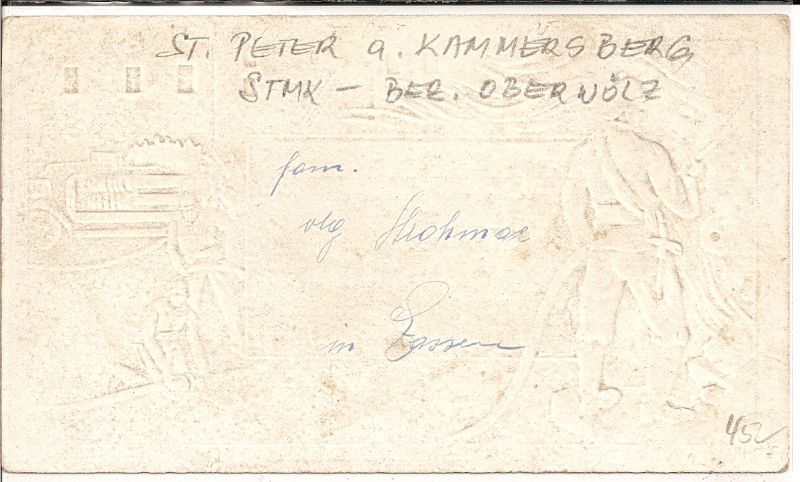 ST. PETER a. KAMMERSBERG
STMK – BEZ. OBERWÖLZ
fam.
vlg Strohmar
in
452